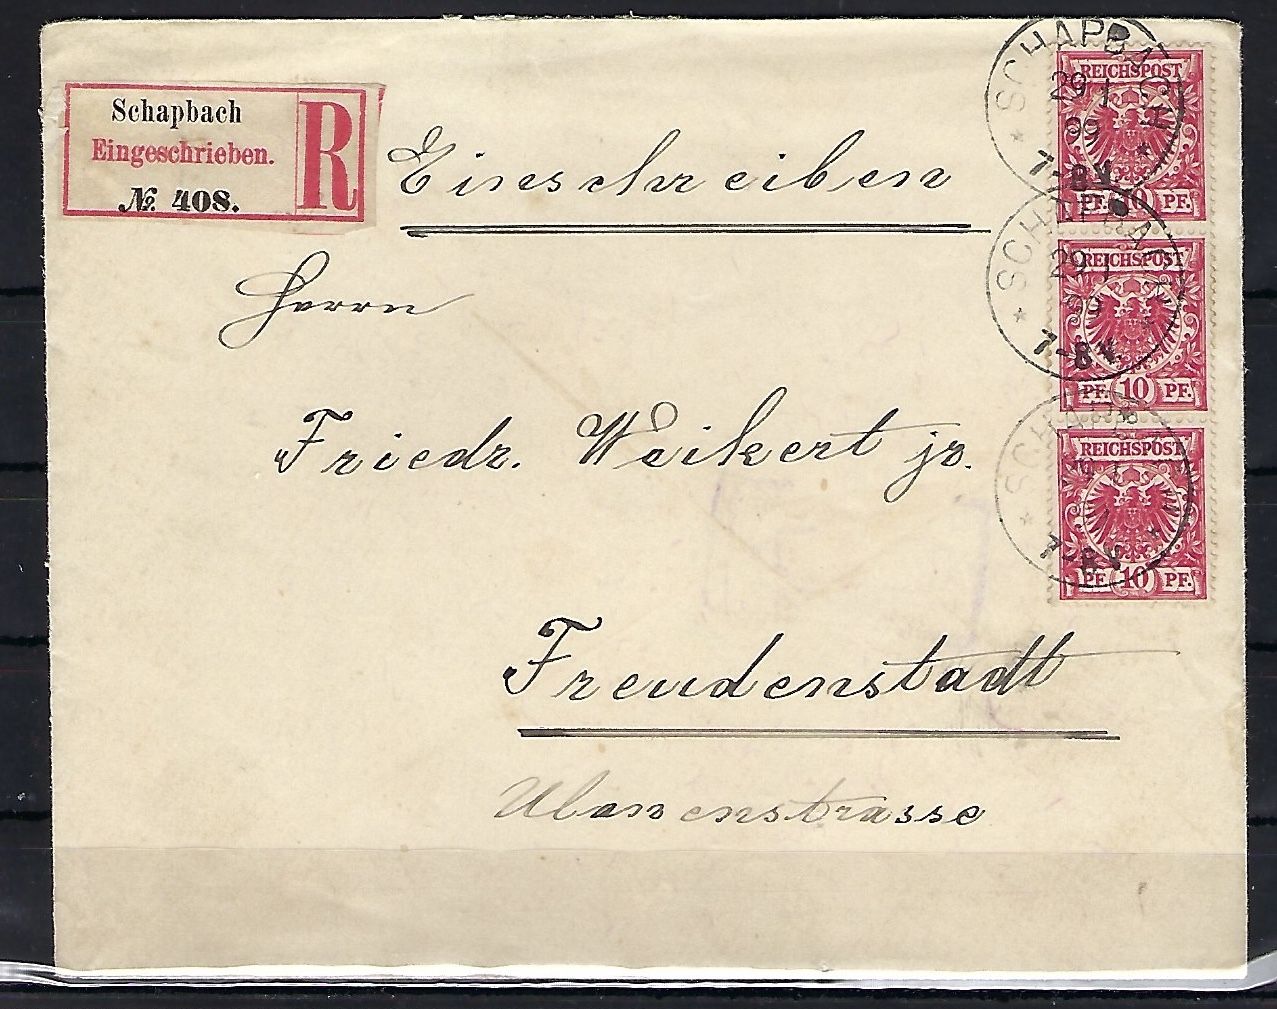 Schapbach
Eingeschrieben.
№ 408.
R
Einschreiben
Herrn
Friedr. Weikert jr.
Freudenstadt
Ulanenstrasse
SCHAPBACH
29 1
99
7-8 V.
REICHSPOST
PF. 10 PF.
SCHAPBACH
29 1
99
7-8 V.
REICHSPOST
PF. 10 PF.
7-8 V.
REICHSPOST
PF. 10 PF.